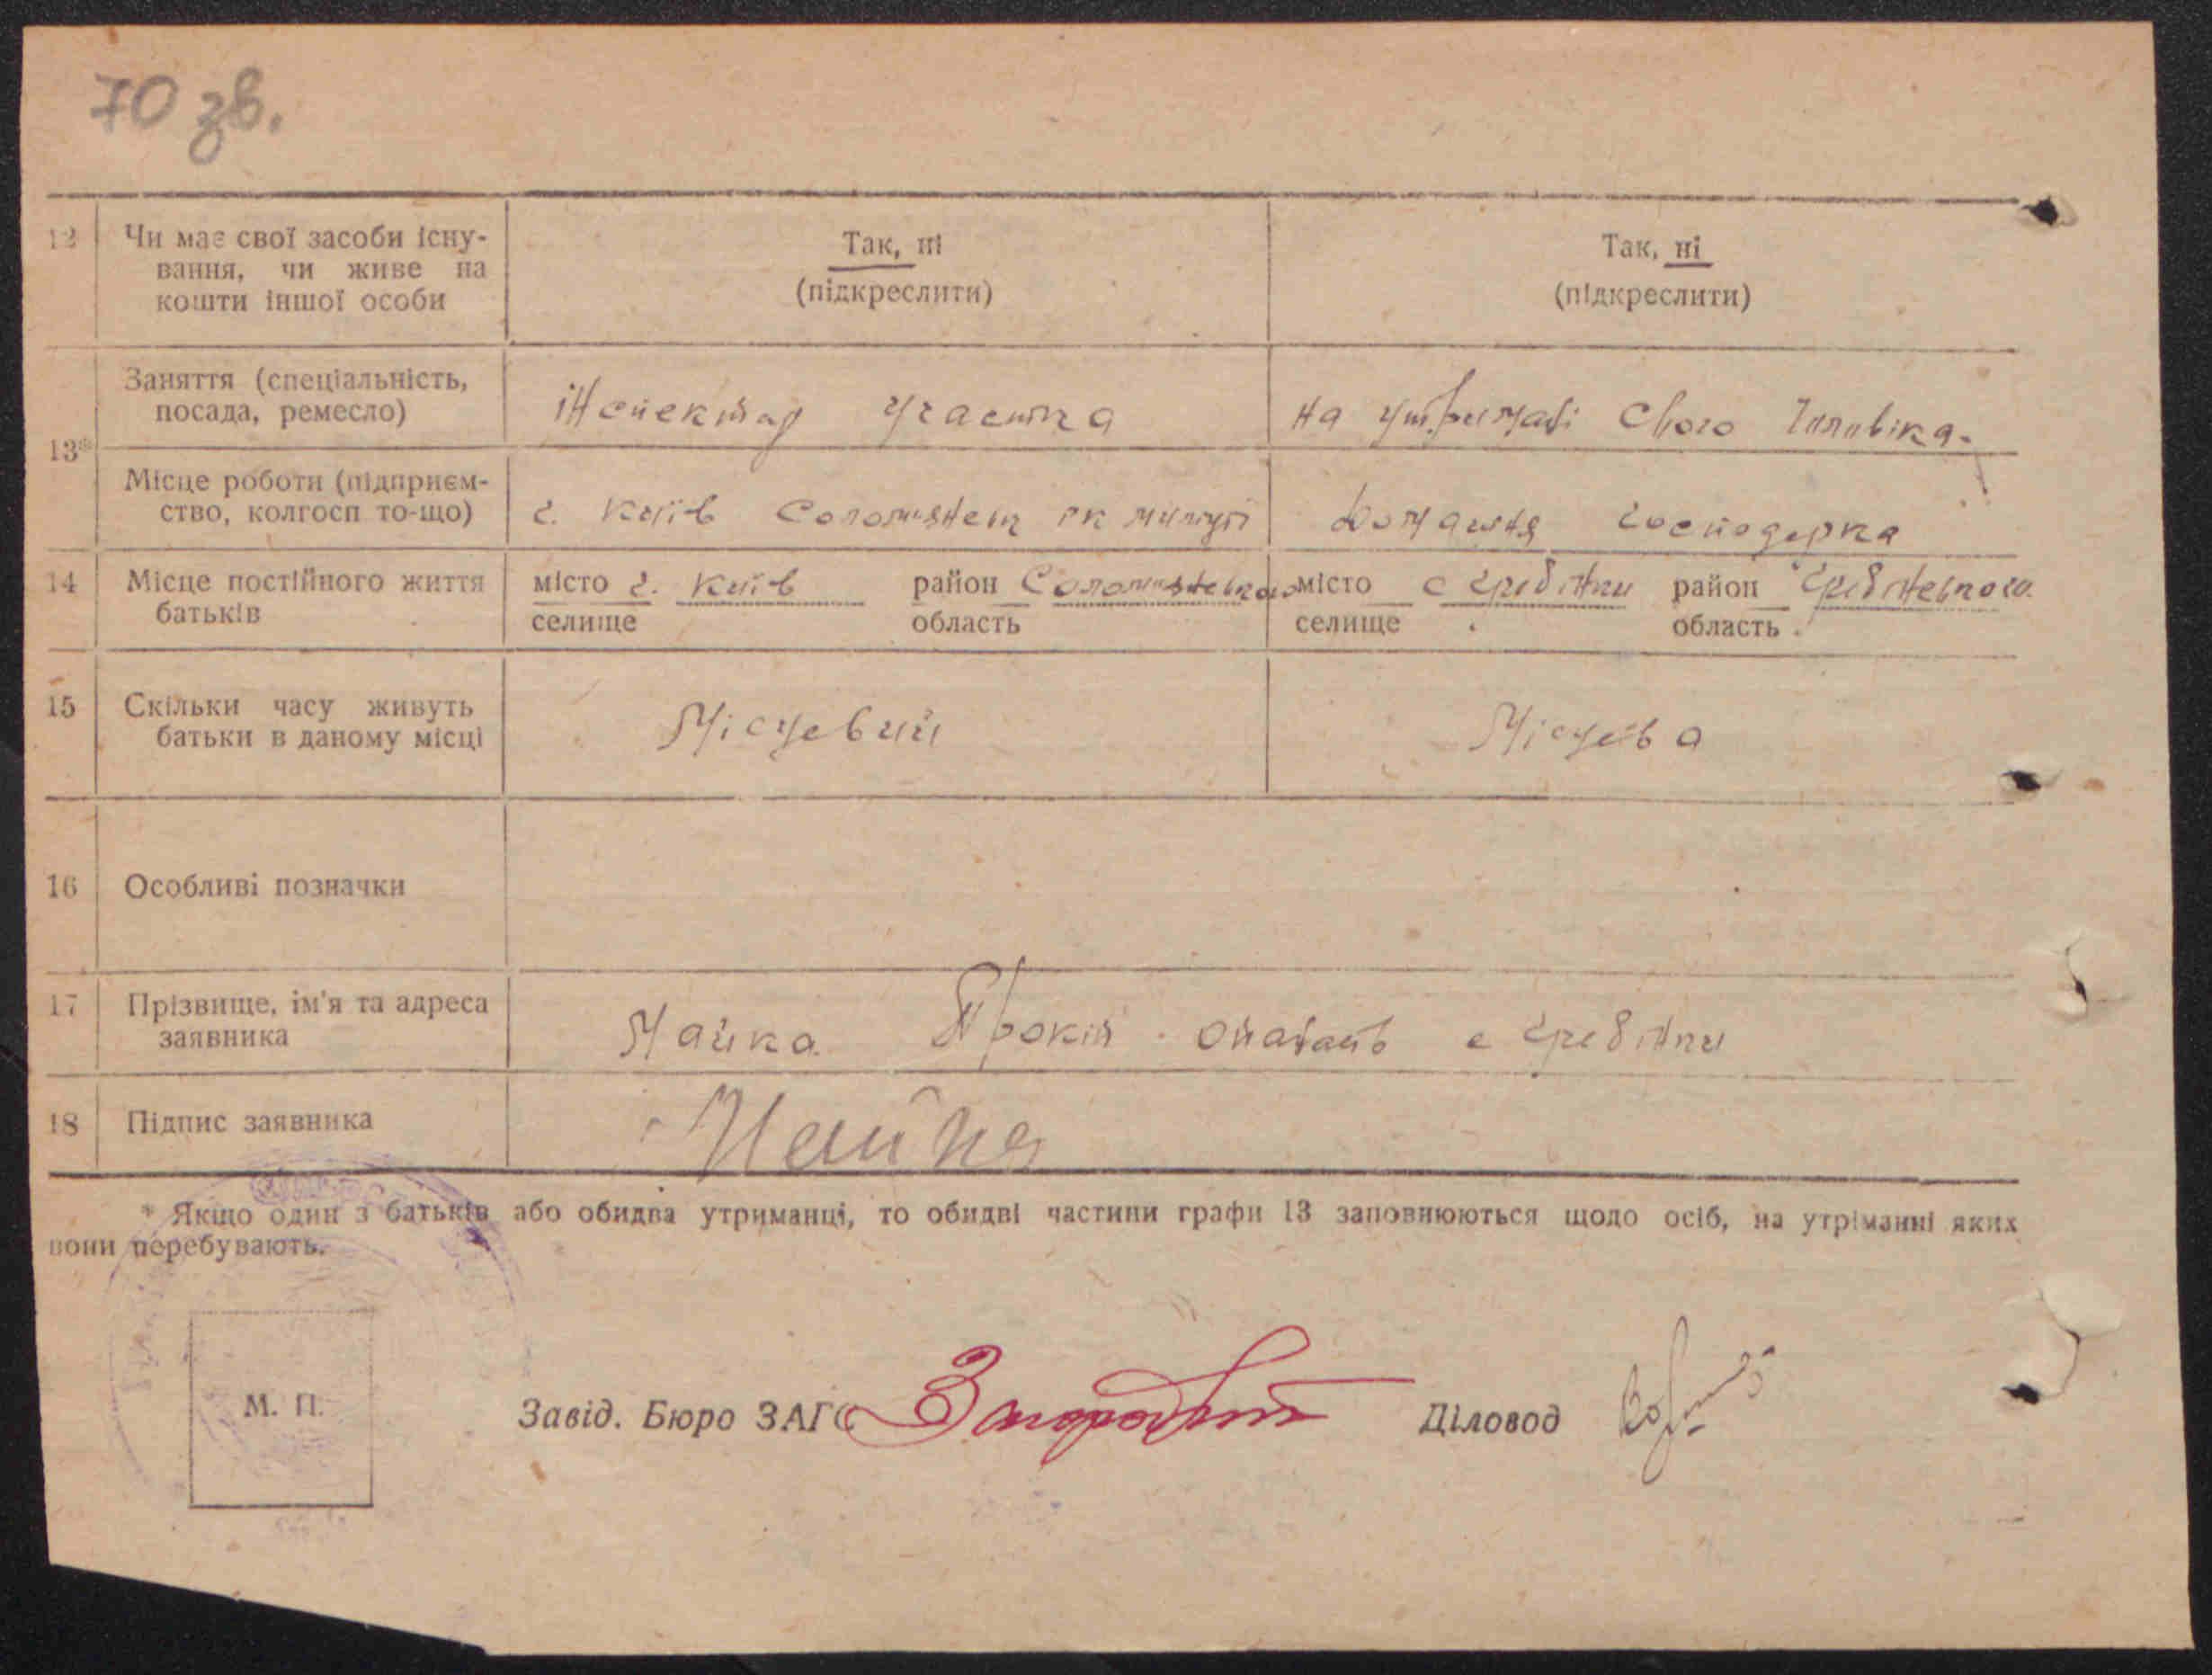 70 зв.
12 Чи має свої засоби існу-
вання, чи живе на
кошти іншої особи
Так, ні
(підкреслити)
Так, ні
(підкреслити)
13*
Заняття (спеціальність,
посада, ремесло)
інспектор участка
на утриманні свого чоловіка.
Місце роботи (підприєм-
ство, колгосп то-що)
г. Київ
домашня господарка
14 Місце постійного життя
батьків
місто г. Київ район
селище область
місто с Гребінки район
селище область
15 Скільки часу живуть
батьки в даному місці
Місцевий
Місцева
16 Особливі позначки
17 Прізвище, ім'я та адреса
заявника
Майка с Гребінки
18 Підпис заявника
Майка
* Якщо один з батьків або обидва утриманці, то обидві частини графи 13 заповнюються щодо осіб, на утріманні яких
вони перебувають.
М. П.
Завід. Бюро ЗАГС
Діловод